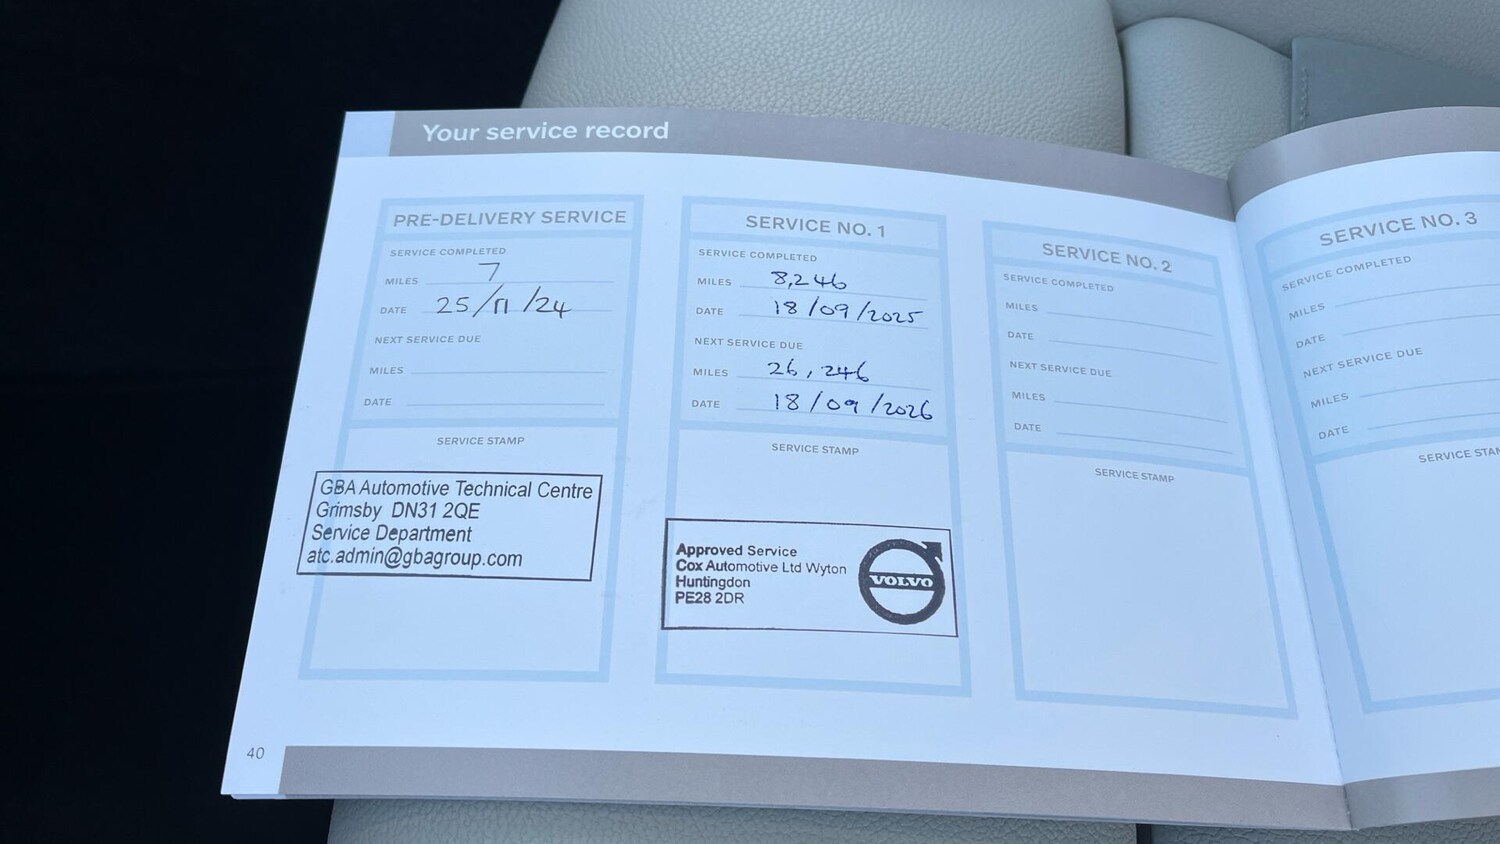 Your service record
PRE-DELIVERY SERVICE
SERVICE COMPLETED
MILES 7
DATE 25/11/24
NEXT SERVICE DUE
MILES
DATE
SERVICE STAMP
GBA Automotive Technical Centre
Grimsby DN31 2QE
Service Department
atc.admin@gbagroup.com
SERVICE NO. 1
SERVICE COMPLETED
MILES 8,246
DATE 18/09/2025
NEXT SERVICE DUE
MILES 26,246
DATE 18/09/2026
SERVICE STAMP
Approved Service
Cox Automotive Ltd Wyton
Huntingdon
PE28 2DR
VOLVO
SERVICE NO. 2
SERVICE COMPLETED
MILES
DATE
NEXT SERVICE DUE
MILES
DATE
SERVICE STAMP
SERVICE NO. 3
SERVICE COMPLETED
MILES
DATE
NEXT SERVICE DUE
MILES
DATE
SERVICE STAM
40